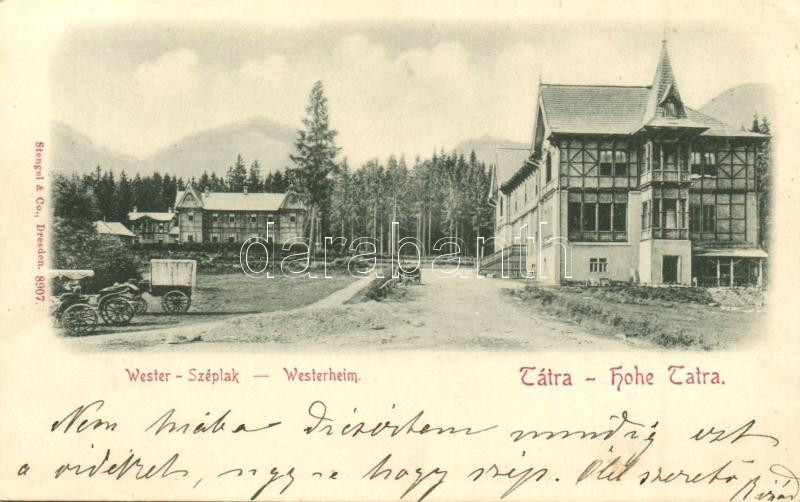 Stengel & Co., Dresden. 8907.
darabanth
Wester - Széplak — Westerheim.
Tátra - Hohe Tatra.
Nem hiába dicsértem mindig ezt
a vidéket, ugy-e hogy szép. Ölel szerető